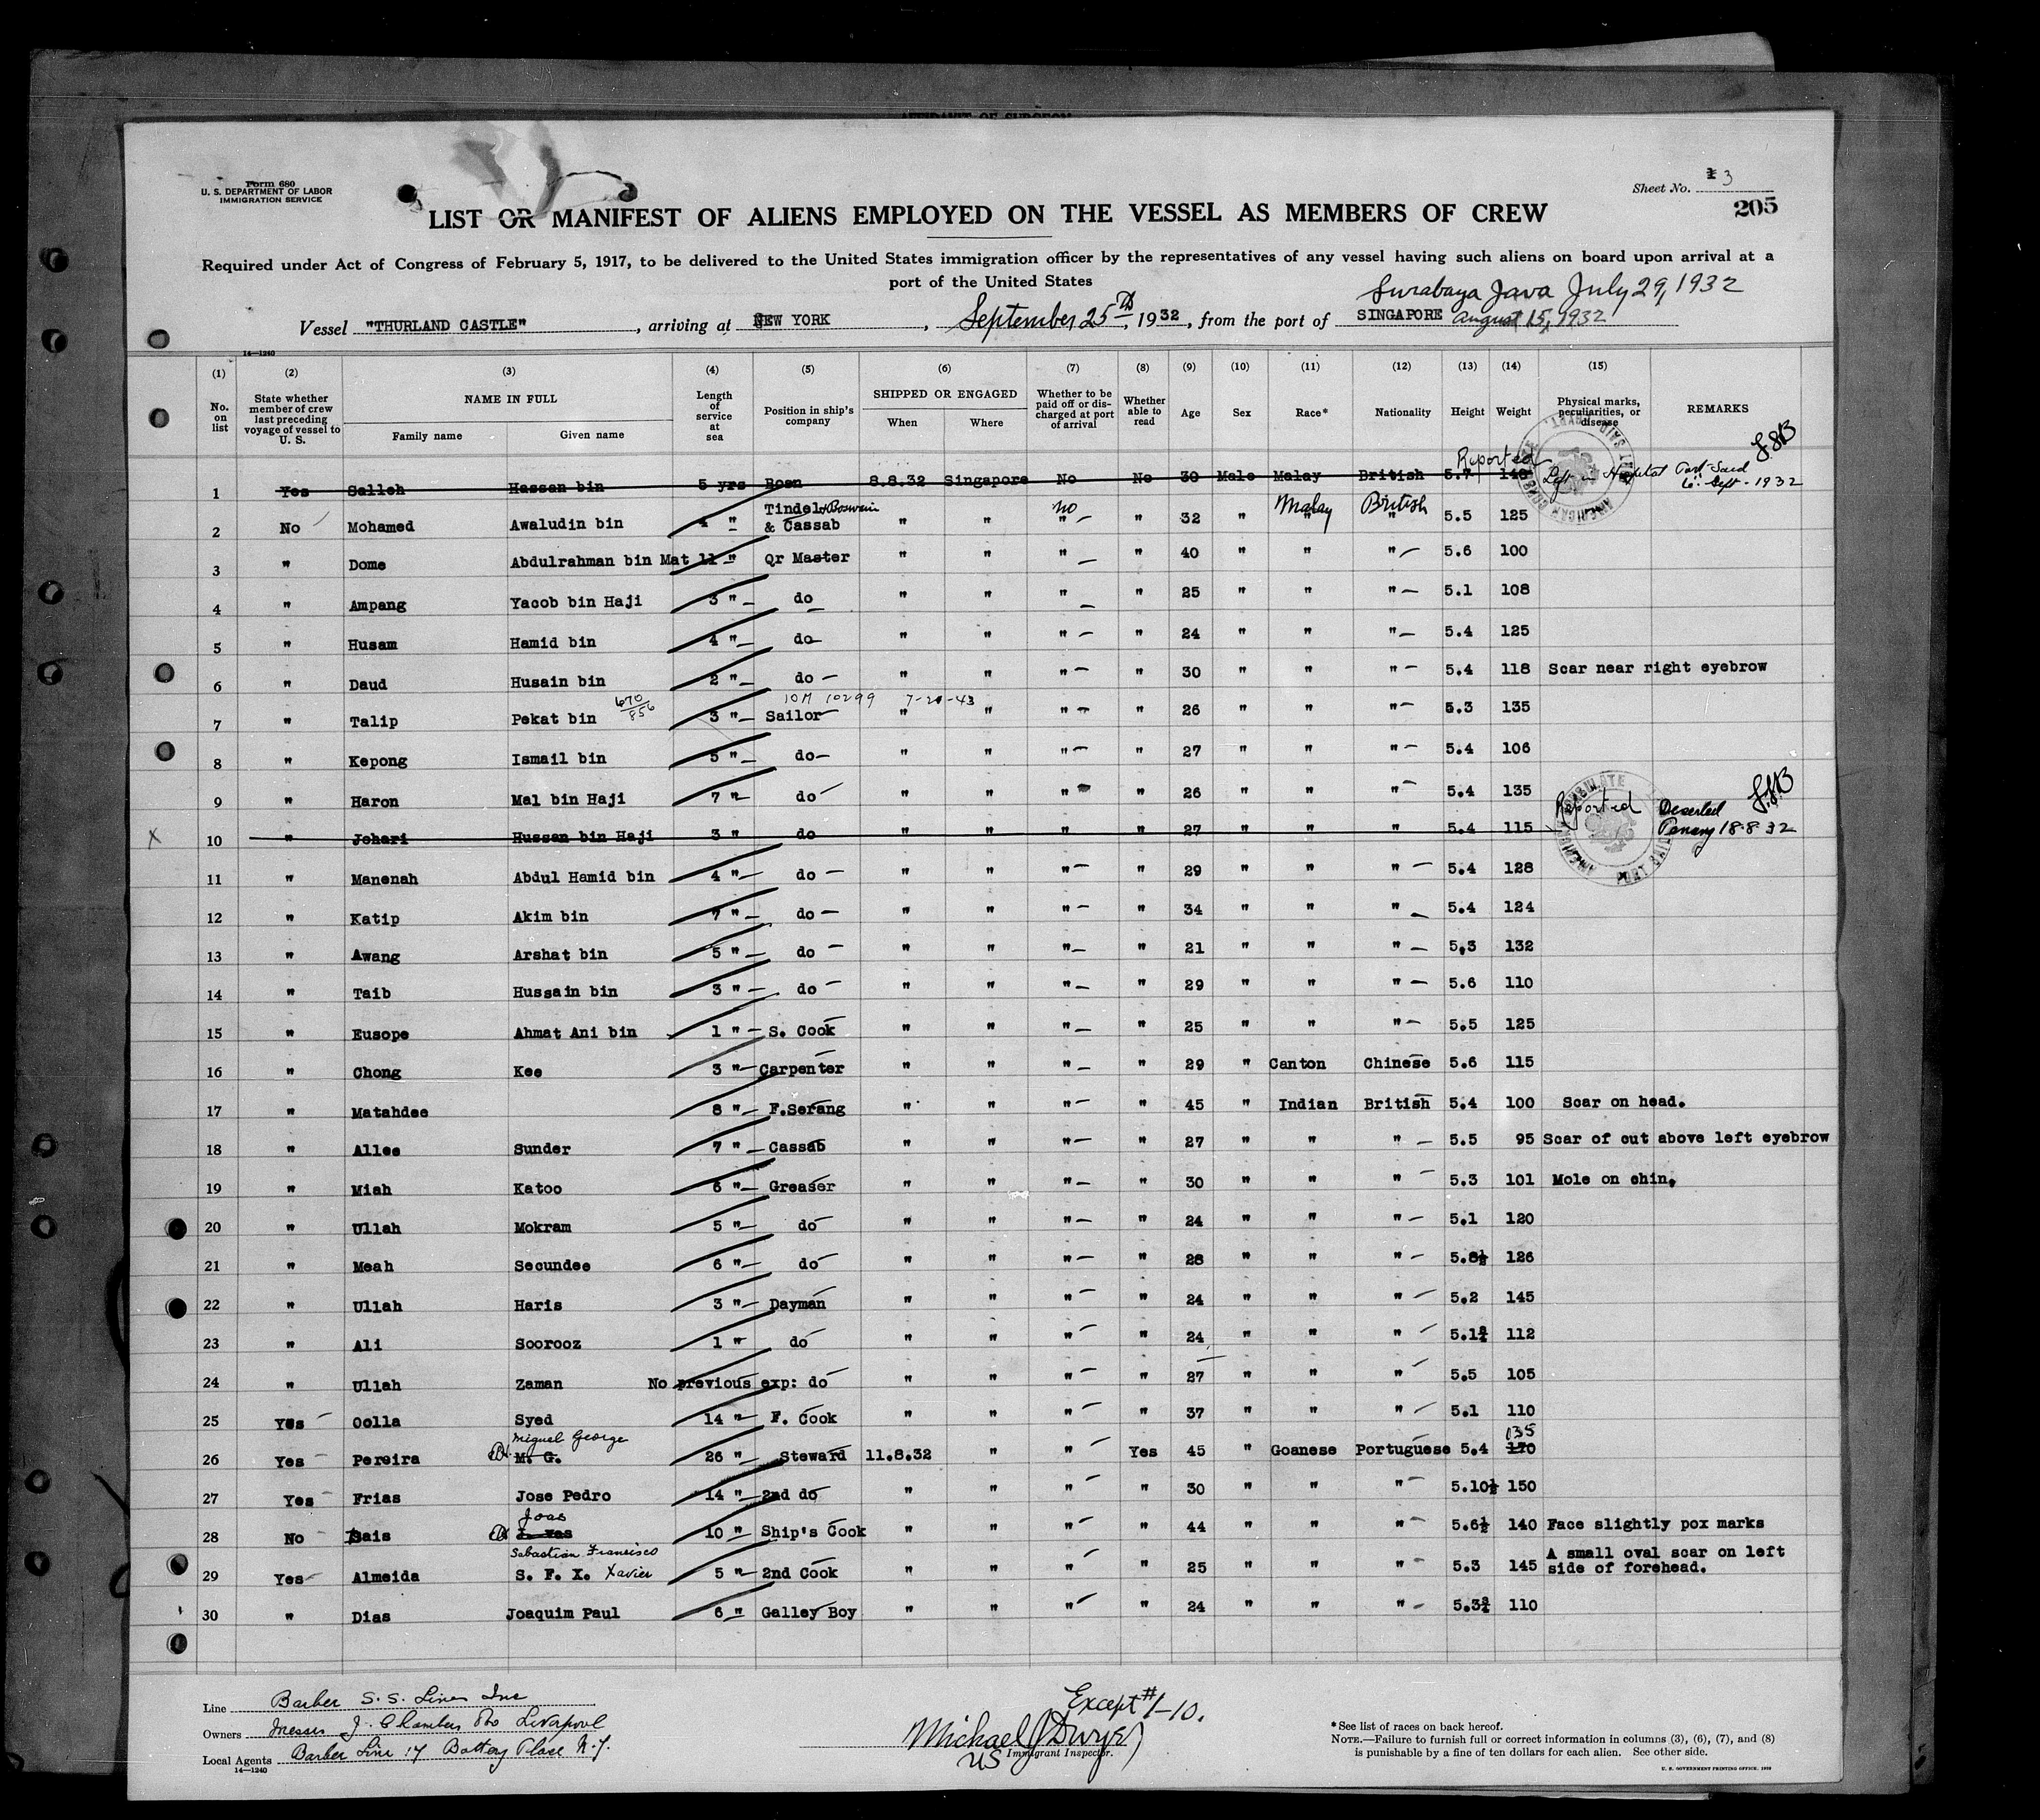 Form 680
U. S. DEPARTMENT OF LABOR
IMMIGRATION SERVICE
Sheet No. 3
205
LIST OR MANIFEST OF ALIENS EMPLOYED ON THE VESSEL AS MEMBERS OF CREW
Required under Act of Congress of February 5, 1917, to be delivered to the United States immigration officer by the representatives of any vessel having such aliens on board upon arrival at a
port of the United States
Surabaya Java July 29, 1932
Vessel "THURLAND CASTLE", arriving at NEW YORK, September 25th, 1932, from the port of SINGAPORE August 15, 1932
14—1240
(1) (2) (3) (4) (5) (6) (7) (8) (9) (10) (11) (12) (13) (14) (15)
No. on list State whether member of crew last preceding voyage of vessel to U. S. NAME IN FULL Family name Given name Length of service at sea Position in ship's company SHIPPED OR ENGAGED When Where Whether to be paid off or discharged at port of arrival Whether able to read Age Sex Race* Nationality Height Weight Physical marks, peculiarities, or disease REMARKS
1 Yes Salleh Hassan bin 5 yrs Bosn 8.8.32 Singapore No No 30 Male Malay British 5.7 148 Reported Left in Hospital Port Said 6. Sept - 1932
2 No Mohamed Awaludin bin 4 " Tindel & Boswain & Cassab " " no " " 32 " Malay " British " 5.5 125
3 " Dome Abdulrahman bin Mat 11 " Qr Master " " " " 40 " " " 5.6 100
4 " Ampang Yacob bin Haji 3 " do " " " " 25 " " " 5.1 108
5 " Husam Hamid bin 4 " do " " " " 24 " " " 5.4 125
6 " Daud Husain bin 2 " do " " " " 30 " " " 5.4 118 Scar near right eyebrow
670/856 10M 10299 7-21-43
7 " Talip Pekat bin 3 " Sailor " " " " 26 " " " 5.3 135
8 " Kepong Ismail bin 5 " do " " " " 27 " " " 5.4 106
9 " Haron Mal bin Haji 7 " do " " " " 26 " " " 5.4 135
X 10 " Johari Hussan bin Haji 3 " do " " " " 27 " " " 5.4 115 Reported Deserted Penang 18.8.32
11 " Manenah Abdul Hamid bin 4 " do " " " " 29 " " " 5.4 128
12 " Katip Akim bin 7 " do " " " " 34 " " " 5.4 124
13 " Awang Arshat bin 5 " do " " " " 21 " " " 5.3 132
14 " Taib Hussain bin 3 " do " " " " 29 " " " 5.6 110
15 " Eusope Ahmat Ani bin 1 " S. Cook " " " " 25 " " " 5.5 125
16 " Chong Kee 3 " Carpenter " " " " 29 " Canton Chinese 5.6 115
17 " Matahdee 8 " F.Serang " " " " 45 " Indian British 5.4 100 Scar on head.
18 " Allee Sunder 7 " Cassab " " " " 27 " " " 5.5 95 Scar of cut above left eyebrow
19 " Miah Katoo 6 " Greaser " " " " 30 " " " 5.3 101 Mole on chin.
20 " Ullah Mokram 5 " do " " " " 24 " " " 5.1 120
21 " Meah Secundee 6 " do " " " " 28 " " " 5.8½ 126
22 " Ullah Haris 3 " Dayman " " " " 24 " " " 5.2 145
23 " Ali Soorooz 1 " do " " " " 24 " " " 5.1¾ 112
24 " Ullah Zaman No previous exp: do " " " " 27 " " " 5.5 105
25 Yes Oolla Syed 14 " F. Cook " " " " 37 " " " 5.1 110
Miguel George 135
26 Yes Pereira M. G. 26 " Steward 11.8.32 " " Yes 45 " Goanese Portuguese 5.4 170
27 Yes Frias Jose Pedro 14 " 2nd do " " " " 30 " " " 5.10½ 150
28 No Sais Joao 10 " Ship's Cook " " " " 44 " " " 5.6½ 140 Face slightly pox marks
Sabastian Francisco
29 Yes Almeida S. F. X. Xavier 5 " 2nd Cook " " " " 25 " " " 5.3 145 A small oval scar on left side of forehead.
30 " Dias Joaquim Paul 6 " Galley Boy " " " " 24 " " " 5.3¾ 110
Line Barber S.S. Lines Inc
Owners Messrs J. Chambers & Co Liverpool
Local Agents Barber Line 17 Battery Place N.Y.
14—1240
Except # 1-10.
Michael J Dwyer
US Immigrant Inspector.
*See list of races on back hereof.
NOTE.—Failure to furnish full or correct information in columns (3), (6), (7), and (8)
is punishable by a fine of ten dollars for each alien. See other side.
U. S. GOVERNMENT PRINTING OFFICE